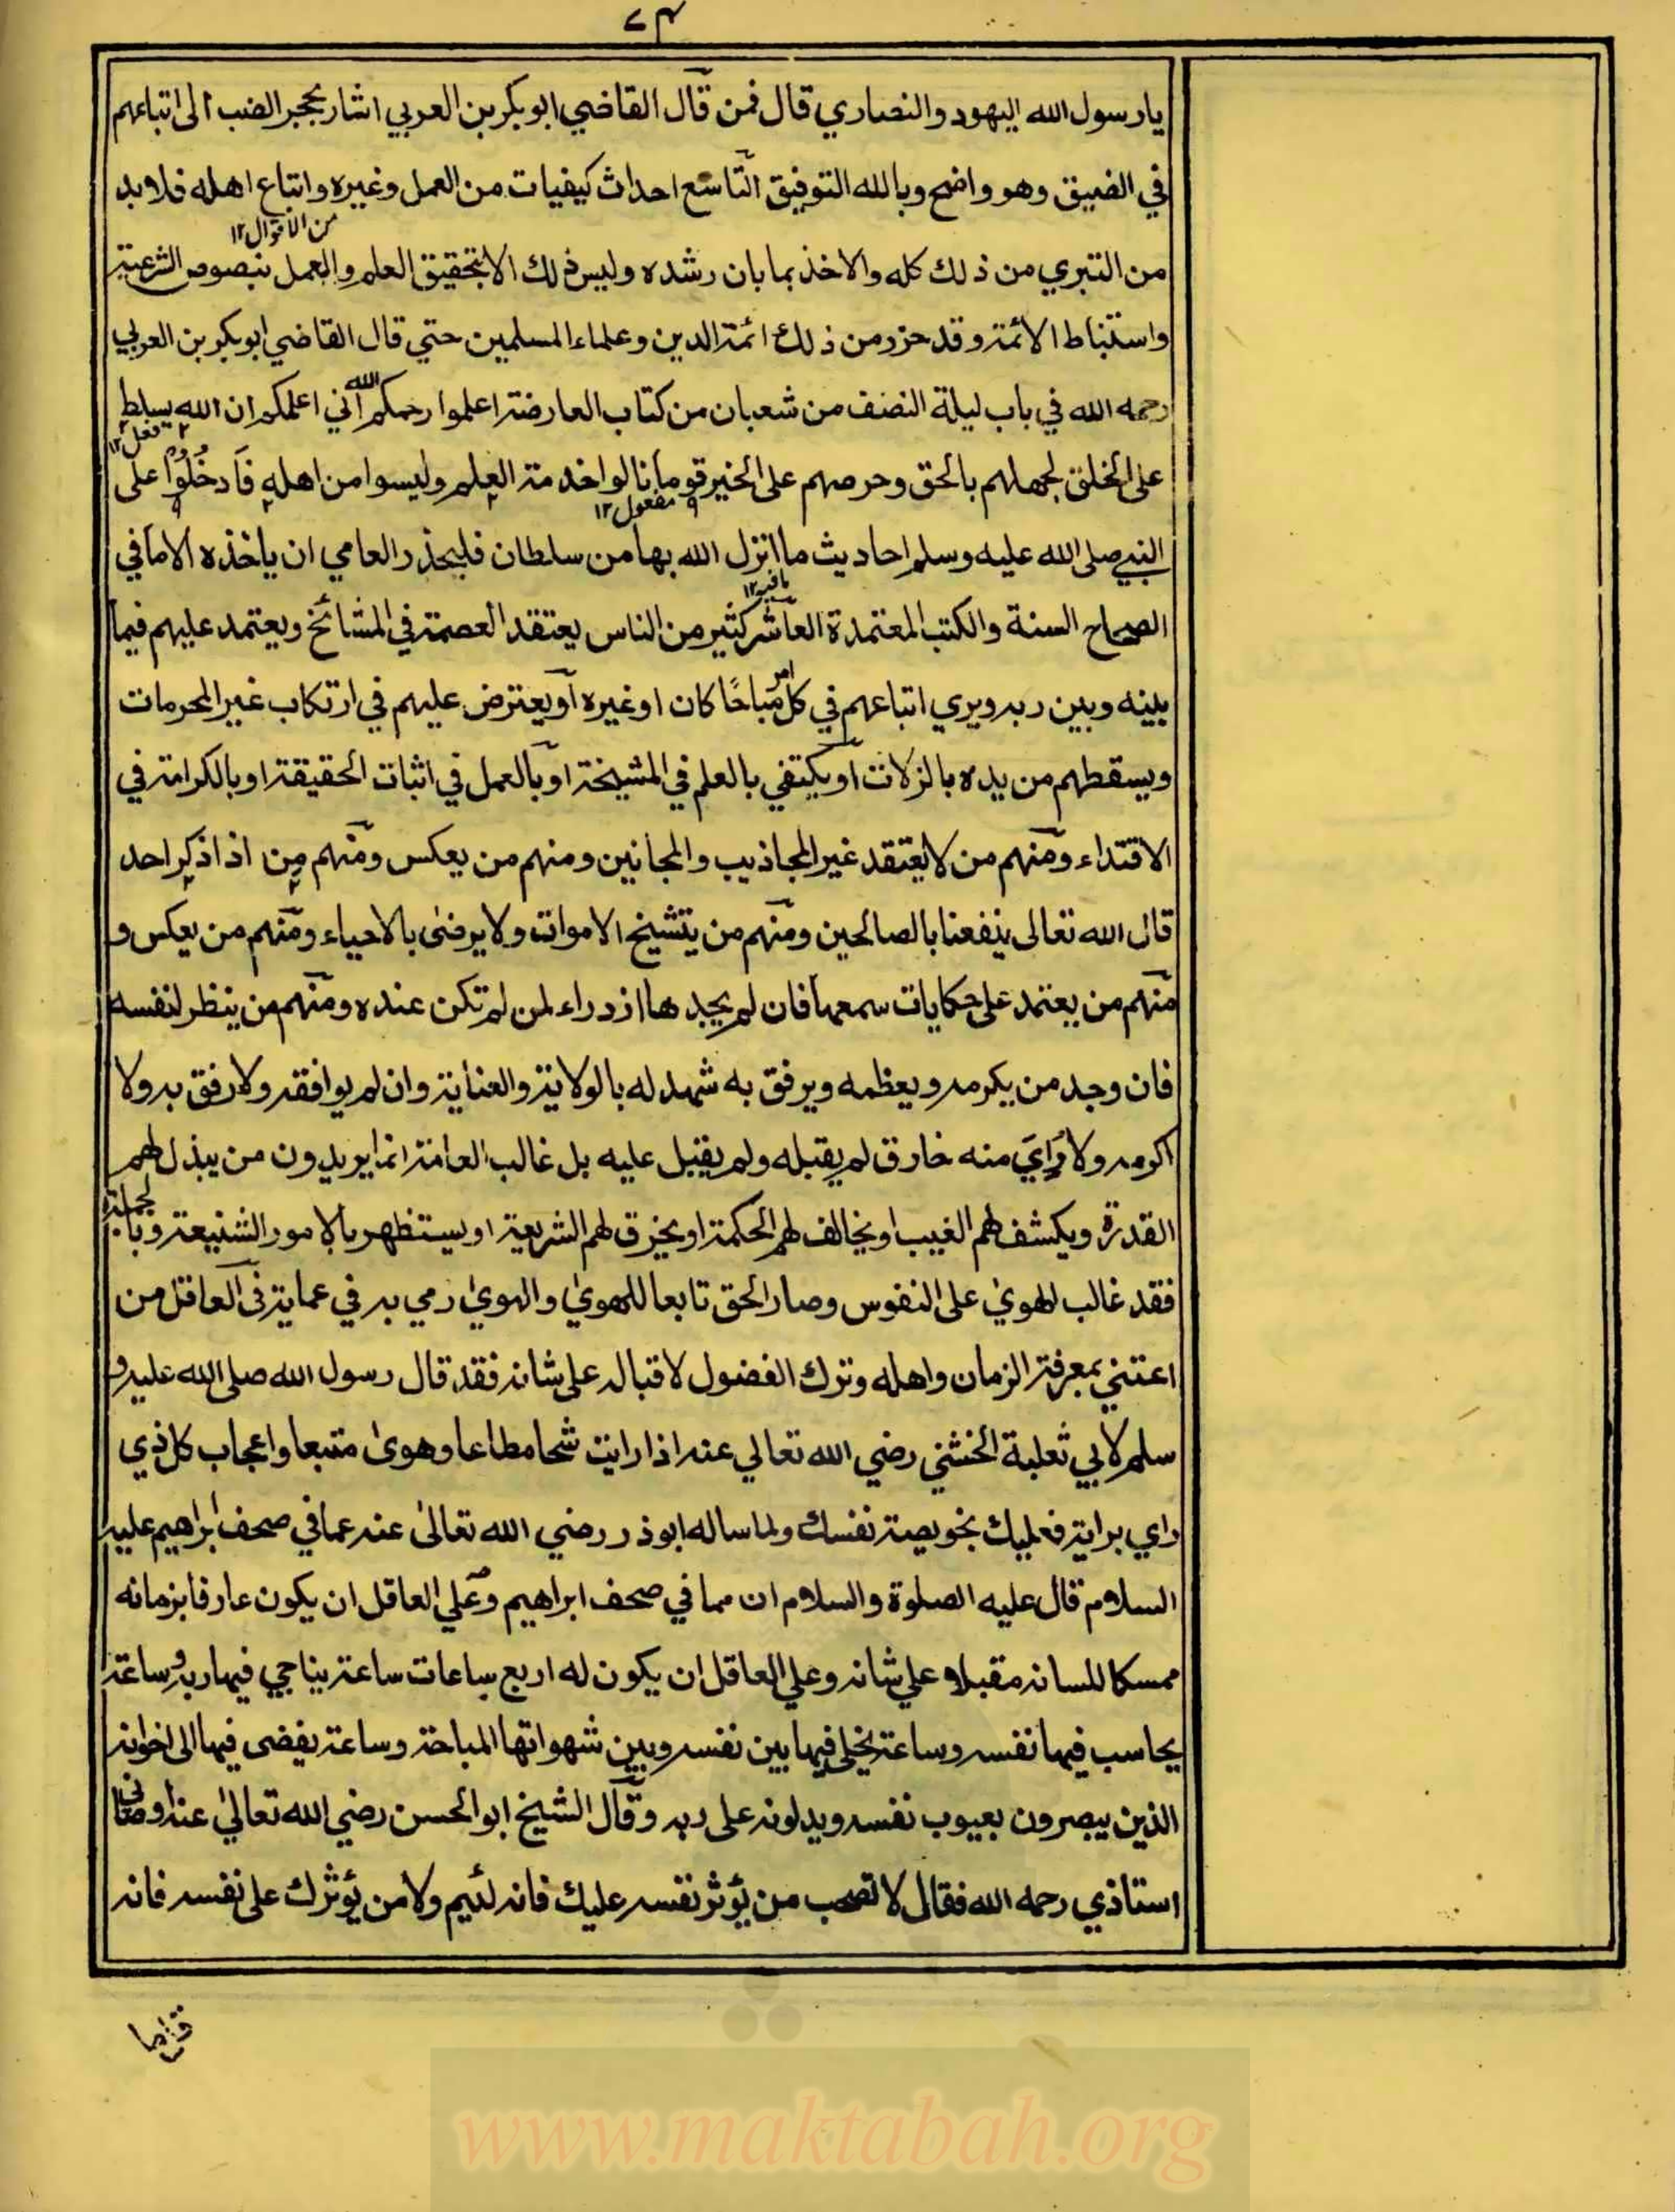 ٧٣
يارسول الله اليهود والنصاري قال فمن قال القاضي ابوبكر بن العربي اشار بجحر الضب الى اتباعهم
في الضيق وهو واضح وبالله التوفيق التاسع احداث كيفيات من العمل وغيره واتباع اهله فلابد
من الاقوال١٢
من التبري من ذلك كله والاخذ بما بان رشده وليس ذلك الا بتحقيق العلم والعمل بنصوص الشرعية
واستنباط الائمة وقد حزر من ذلك ائمة الدين وعلماء المسلمين حتي قال القاضي ابوبكر بن العربي
رحمه الله في باب ليلة النصف من شعبان من كتاب العارضة اعلموا رحمكم الله اني اعلمكم ان الله يسلط
فعل١٢
على الخلق لجهلهم بالحق وحرصهم على الخير قوما نالوا خدمة العلم وليسوا من اهله فادخلوا على
مفعول١٢
النبي صلى الله عليه وسلم احاديث ما انزل الله بها من سلطان فليحذر العامي ان ياخذه الا ما في
ما فيه١٢
الصحاح الستة والكتب المعتمدة العاشر كثير من الناس يعتقد العصمة في المشائخ ويعتمد عليهم فيما
بينه وبين ربه ويري اتباعهم في كل امر مباحًا كان او غيره او يعترض عليهم في ارتكاب غير المحرمات
ويسقطهم من يده بالزلات او يكتفي بالعلم في المشيخة او بالعمل في اثبات الحقيقة او بالكرامة في
الاقتداء ومنهم من لا يعتقد غير المجاذيب والمجانين ومنهم من يعكس ومنهم من اذا ذكر احد
قال الله تعالى ينفعنا بالصالحين ومنهم من يتشيخ الاموات ولا يرضى بالاحياء ومنهم من يعكس و
منهم من يعتمد على حكايات سمعها فان لم يجدها ازدراء لمن لم تكن عنده ومنهم من ينظر لنفسه
فان وجد من يكرمه ويعظمه ويرفق به شهد له بالولاية والعناية وان لم يوافقه ولا رفق به ولا
اكرمه ولا راي منه خارق لم يقبله ولم يقبل عليه بل غالب العامة انما يريدون من يبذل لهم
القدرة ويكشف لهم الغيب او يخالف لهم الحكمة او يخرق لهم الشريعة او يستظهر بالامور الشنيعة وبالجملة
فقد غالب الهوى على النفوس وصار الحق تابعا للهوي والهوي رمي به في عماية في العاقل من
اعتني بمعرفة الزمان واهله وترك الفضول لاقباله على شانه فقد قال رسول الله صلى الله عليه و
سلم لابي ثعلبة الخشني رضي الله تعالي عنه اذا رايت شحا مطاعا وهوى متبعا واعجاب كل ذي
راي برايه فعليك بخويصة نفسك ولما ساله ابوذر رضي الله تعالى عنه عما في صحف ابراهيم عليه
السلام قال عليه الصلوة والسلام ان مما في صحف ابراهيم وعلي العاقل ان يكون عارفا بزمانه
ممسكا للسانه مقبلا علي شانه وعلي العاقل ان يكون له اربع ساعات ساعة يناجي فيها ربه وساعة
يحاسب فيها نفسه وساعة يخلي فيها بين نفسه وبين شهواتها المباحة وساعة يفضى فيها الى اخوانه
الذين يبصرون بعيوب نفسه ويدلونه على ربه وقال الشيخ ابوالحسن رضي الله تعالي عنه اوصاني
استاذي رحمه الله فقال لا تصحب من يؤثر نفسه عليك فانه لئيم ولا من يؤثرك على نفسه فانه
www.maktabah.org